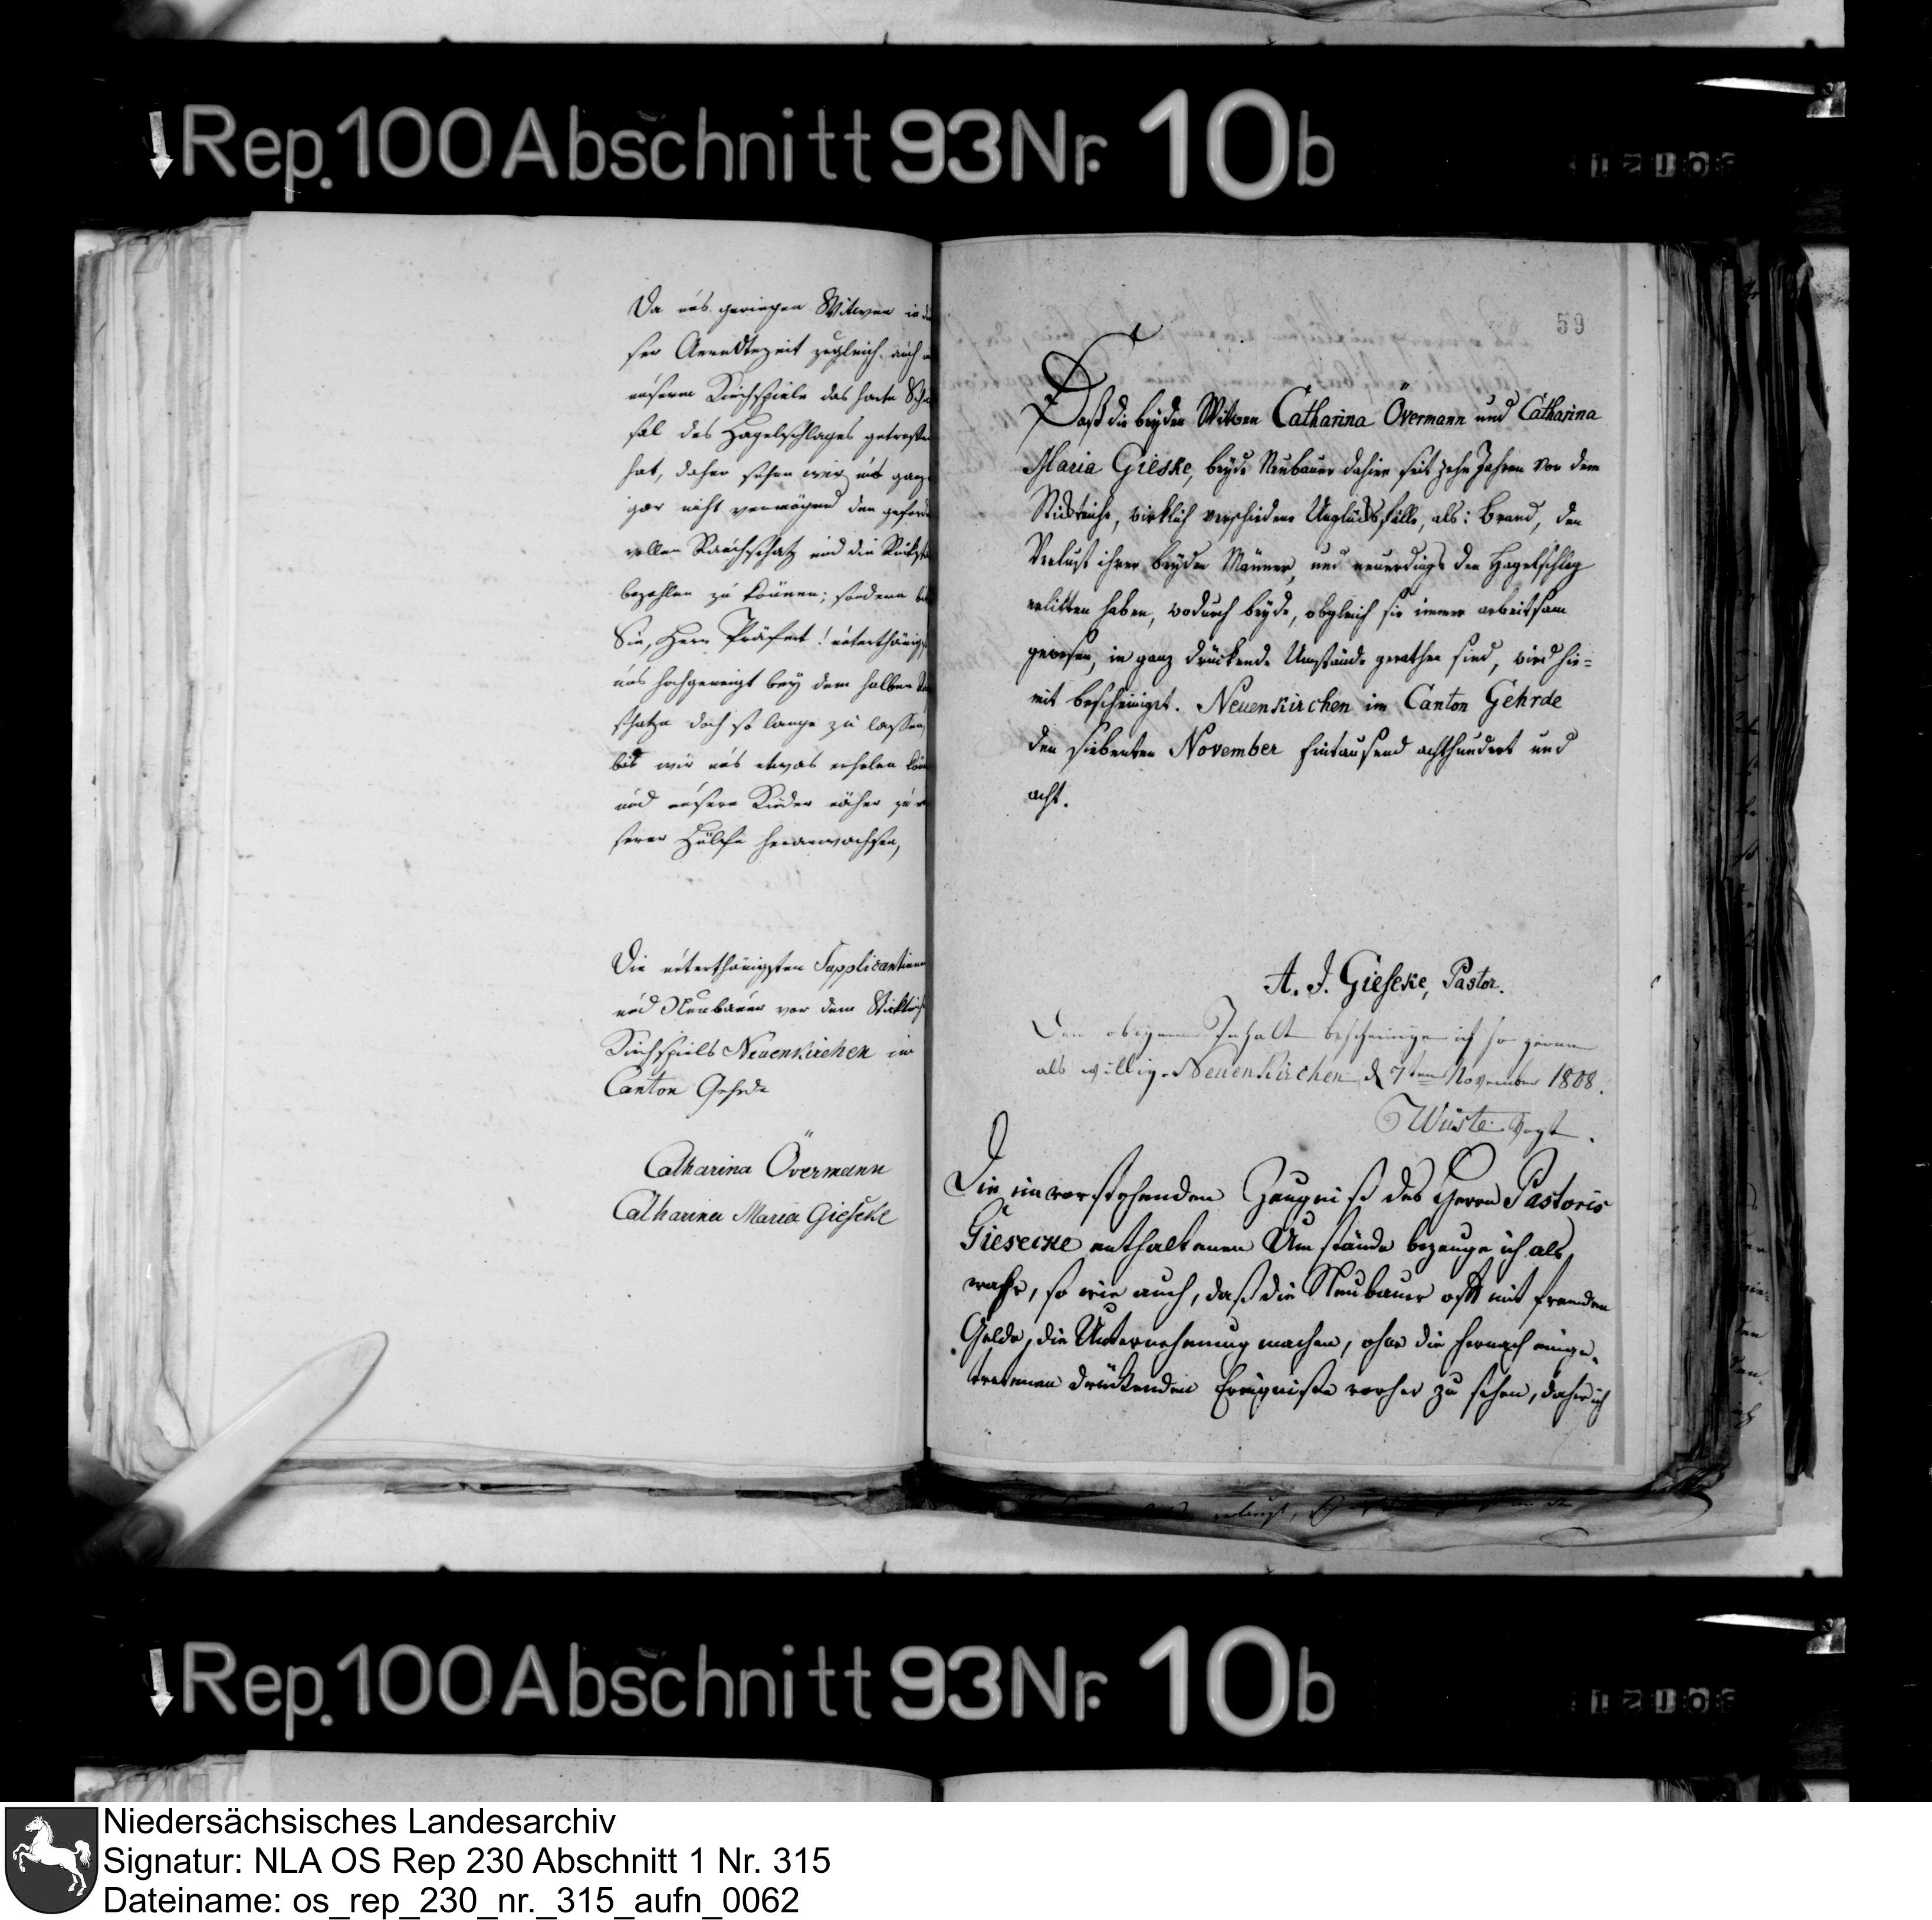 Rep. 100 Abschnitt 93 Nr. 10b
Da uns geringen Witwen in die
ser Aerndtezeit zugleich auch
unserm Kirchspiele das harte Schi
sal des Hagelschlages getroffen
hat, daher sehen wir uns ganz
gar nicht vermögend den geford
vollen Rauchschatz und die Rückst
bezahlen zu können; sondern bi
Sie, Herr Präfect! unterthänigst
uns hochgeneigt bey dem halben
schatze doch so lange zu lassen,
bis wir uns etwas erholen kön
und unsere Kinder näher zu
serer Hülfe heranwachsen,
Die unterthänigsten Supplicantinnen
und Neubauer vor dem
Kirchspiels Neuenkirchen im
Canton Gehrde
Catharina Övermann
Catharina Maria Gieseke
59
Daß die beyden Witwen Catharina Övermann und Catharina
Maria Gieske, beyde Neubauer dahier seit zehn Jahren vor dem
wirklich verschiedene Unglücksfälle, als: Brand, den
Verlust ihrer beyden Männer, und neuerdings den Hagelschlag
erlitten haben, wodurch beyde, obgleich sie immer arbeitsam
gewesen, in ganz drückende Umstände gerathen sind, wird hie=
mit bescheiniget. Neuenkirchen im Canton Gehrde
den siebenten November Eintausend achthundert und
acht.
A. J. Gieseke, Pastor.
Den obigen Inhalt bescheinige ich so gerne
als willig. Neuenkirchen d 7ten November 1808.
Wüste Vogt.
Die im vorstehenden Zeugniß des Herrn Pastoris
Giesecke enthaltenen Umstände bezeuge ich als
wahr, so wie auch, daß die Neubauer oft mit fremden
Gelde, die Unternehmung machen, ohne die hernach einge-
tretenen drückenden Ereignisse vorher zu sehen, daher ich
Rep. 100 Abschnitt 93 Nr. 10b
Niedersächsisches Landesarchiv
Signatur: NLA OS Rep 230 Abschnitt 1 Nr. 315
Dateiname: os_rep_230_nr._315_aufn_0062